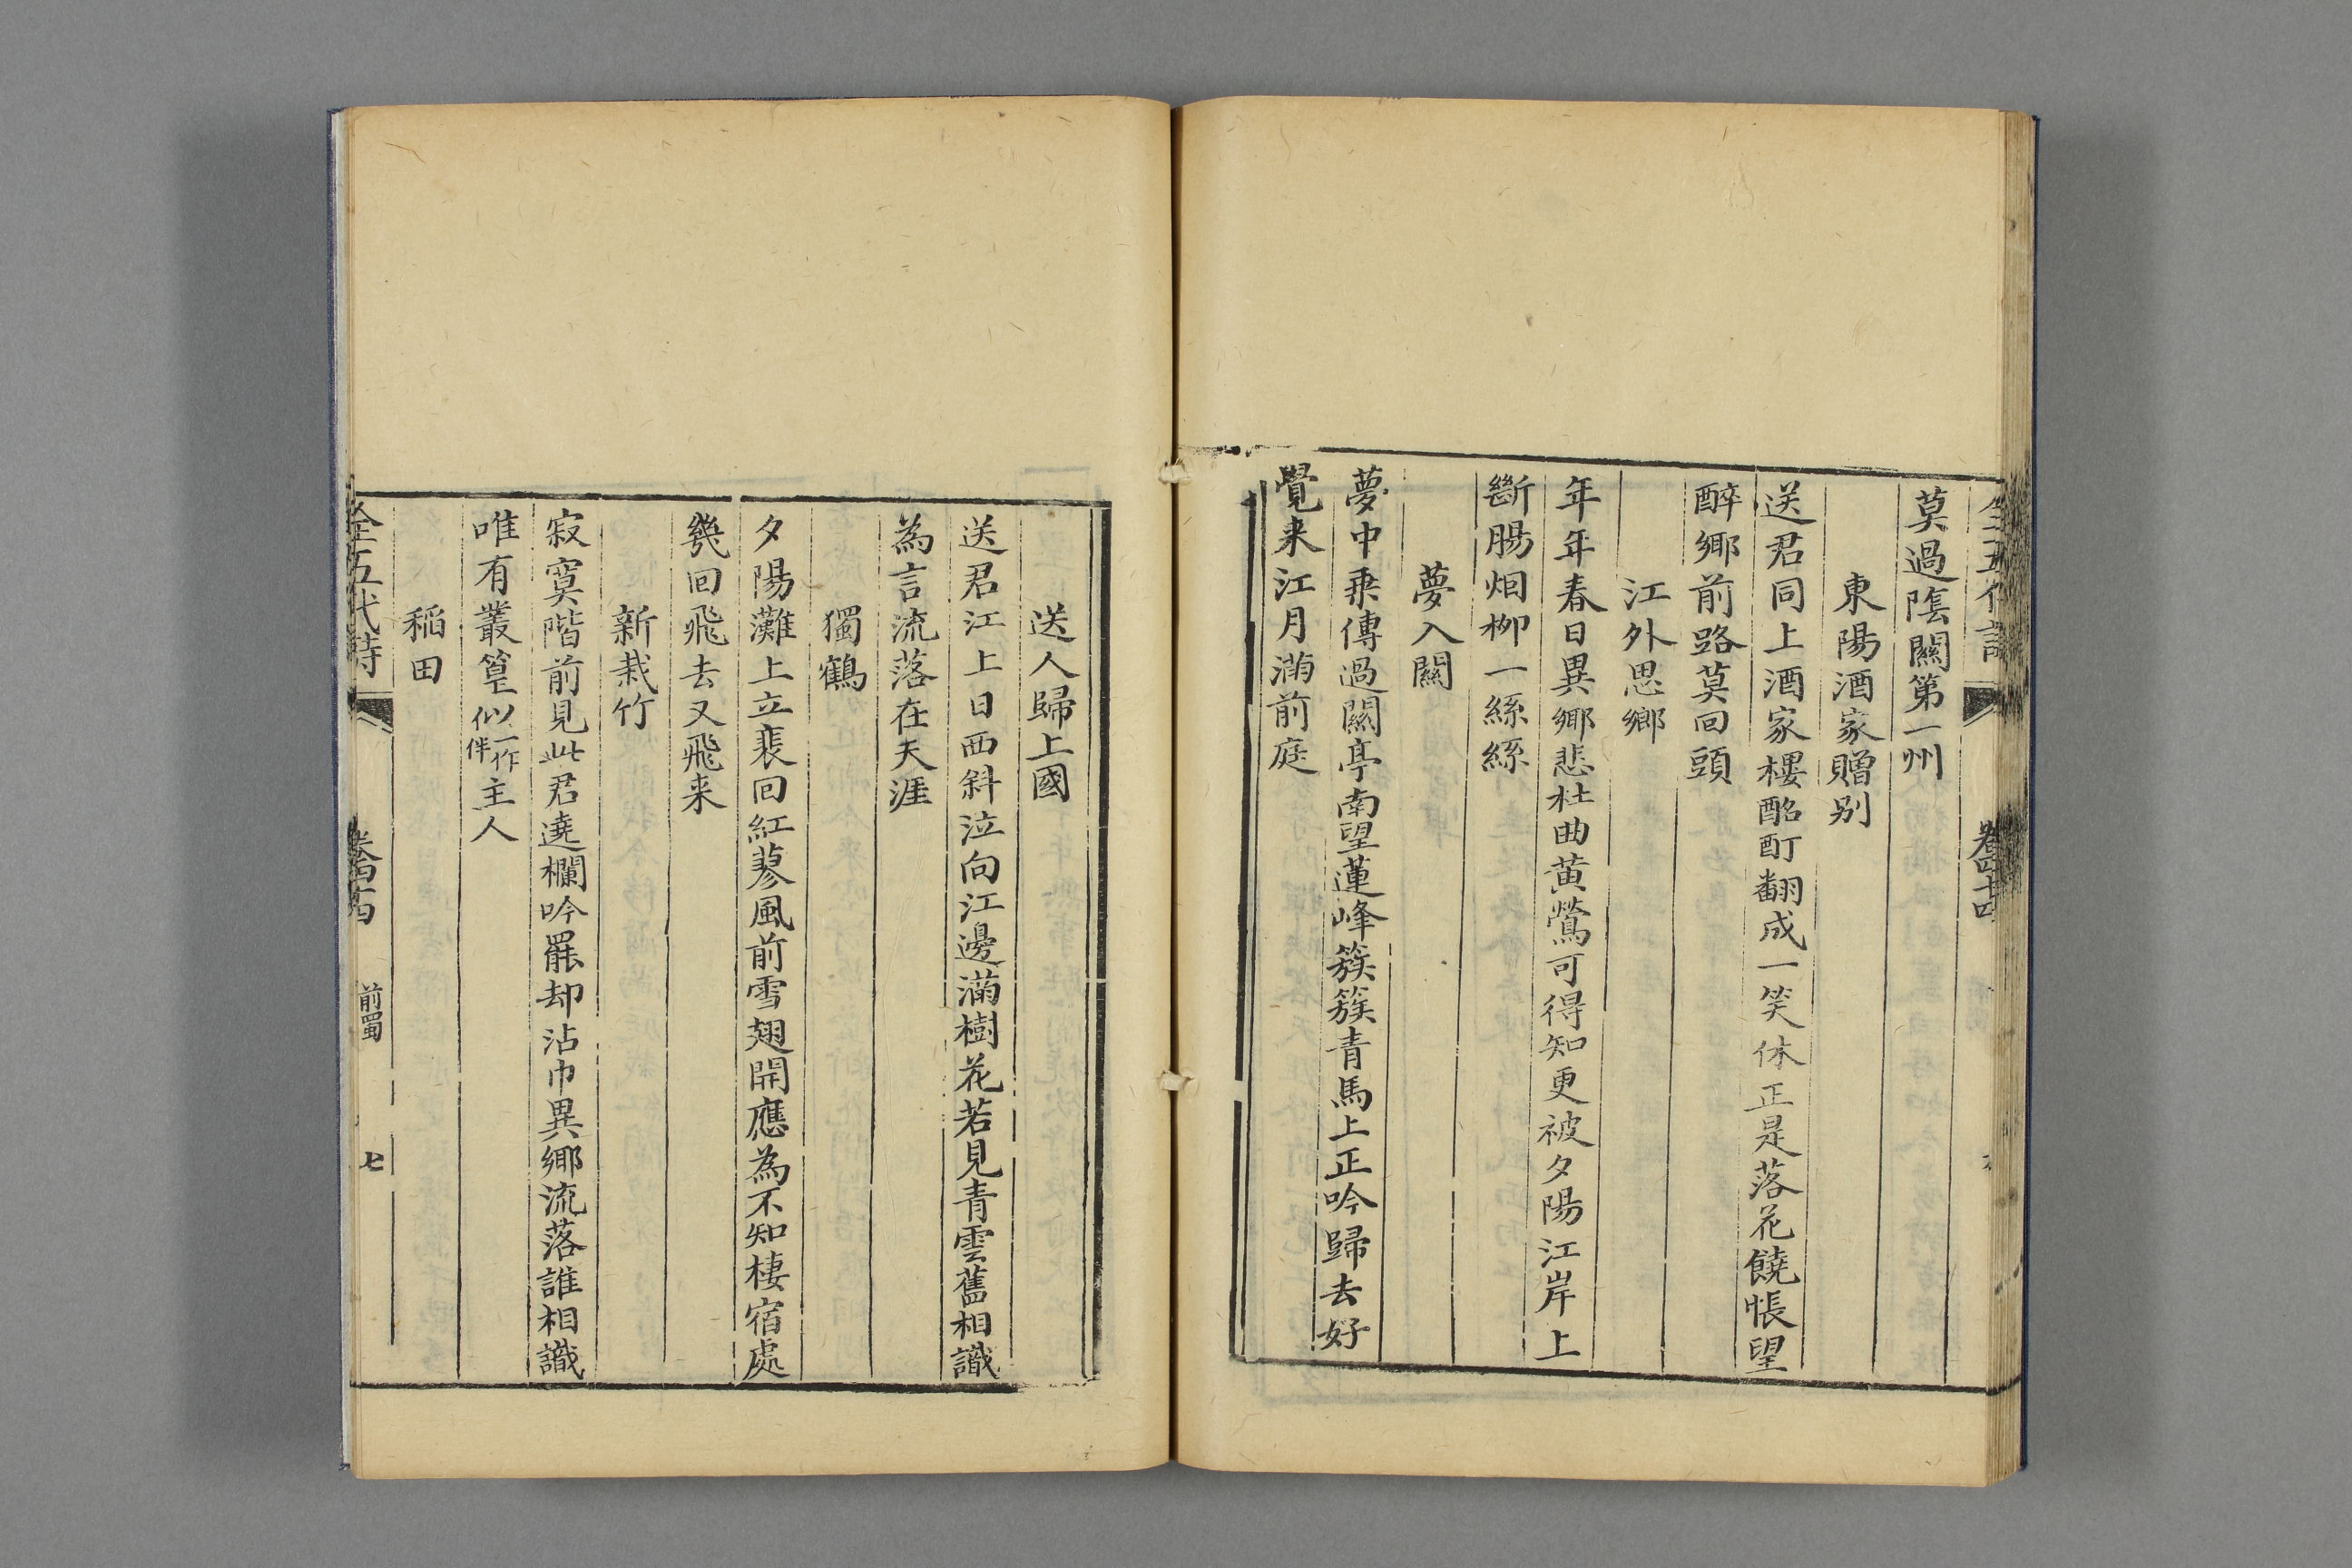 全五代詩
卷四十四
莫過隂關第一州
東陽酒家贈别
送君同上酒家樓酩酊翻成一笑休正是落花饒悵望
醉鄉前路莫回頭
江外思鄉
年年春日異鄉悲杜曲黄鶯可得知更被夕陽江岸上
斷腸烟柳一絲絲
夢入關
夢中乗傳過關亭南望蓮峰簇簇青馬上正吟歸去好
覺来江月滿前庭
送人歸上國
送君江上日西斜泣向江邊滿樹花若見青雲舊相識
為言流落在天涯
獨鶴
夕陽灘上立裴回紅蓼風前雪翅開應為不知棲宿處
幾回飛去又飛来
新栽竹
寂寞階前見此君遶欄吟罷却沾巾異鄉流落誰相識
唯有叢篁似一作伴主人
稲田
全五代詩
卷四十四
前蜀
七